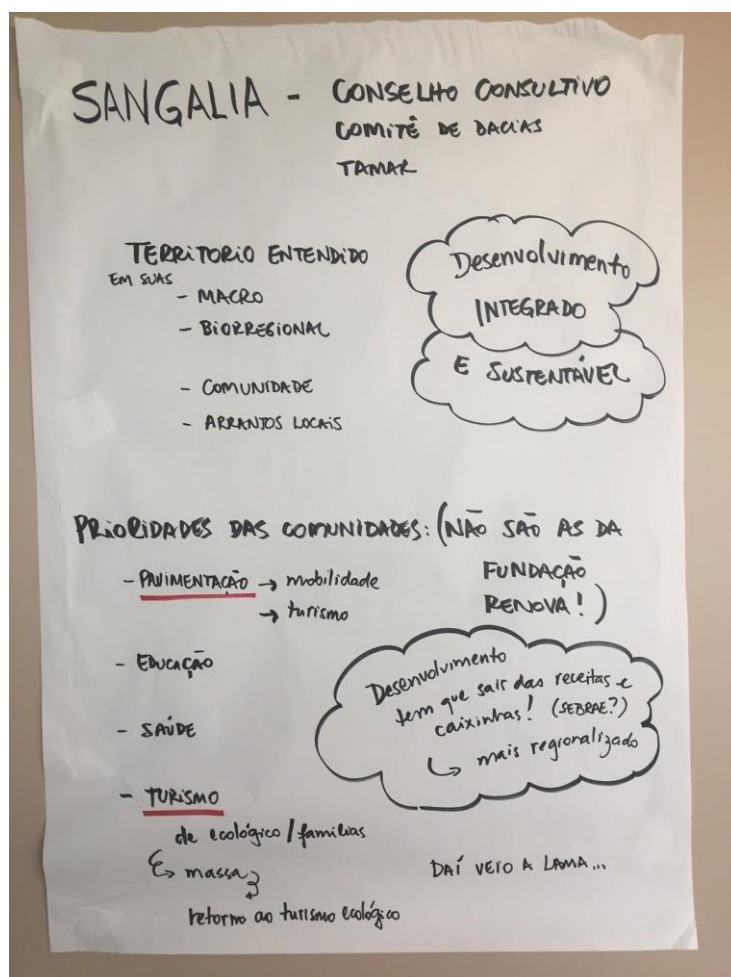 SANGALIA - CONSELHO CONSULTIVO
COMITÊ DE BACIAS
TAMAR
TERRITORIO ENTENDIDO
EM SUAS
- MACRO
- BIORREGIONAL
- COMUNIDADE
- ARRANJOS LOCAIS
Desenvolvimento
INTEGRADO
E SUSTENTÁVEL
PRIORIDADES DAS COMUNIDADES: (NÃO SÃO AS DA
FUNDAÇÃO
RENOVA!)
- PAVIMENTAÇÃO → mobilidade
→ turismo
- EDUCAÇÃO
- SAÚDE
- TURISMO
de ecológico / famílias
↳ massa
retorno ao turismo ecológico
Desenvolvimento
tem que sair das receitas e
caixinhas! (SEBRAE?)
↳ mais regionalizado
DAÍ VEIO A LAMA...